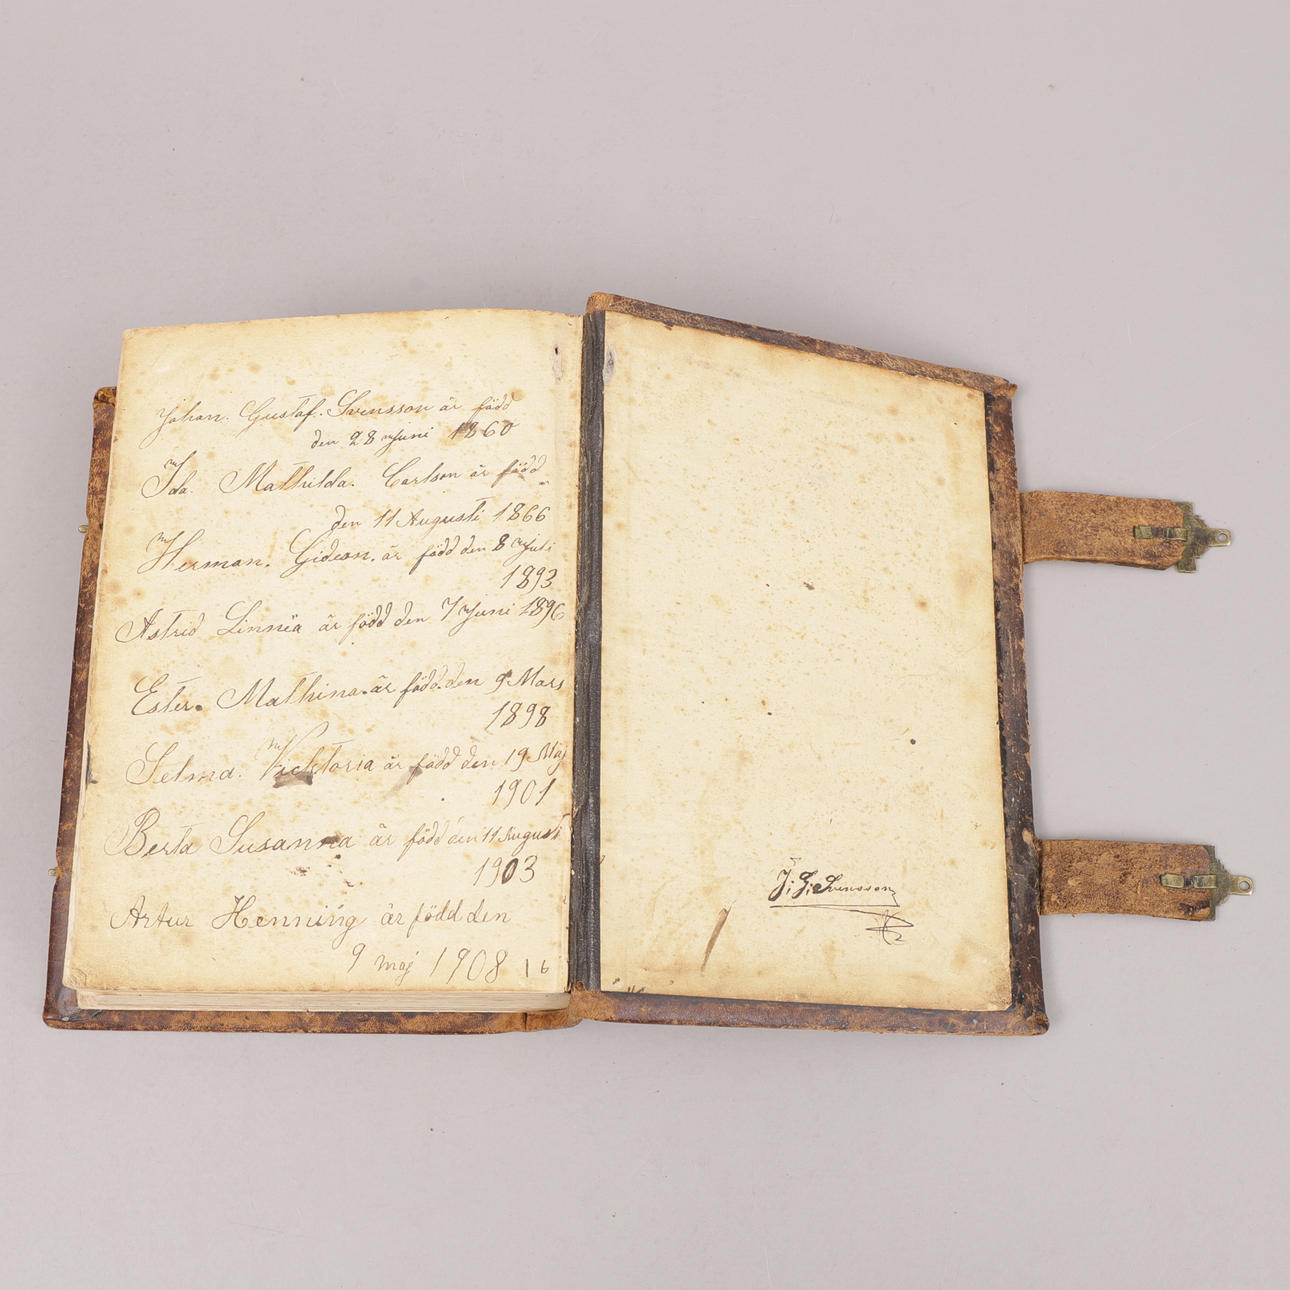 Johan. Gustaf. Svensson är född
den 28 Juni 1860
Ida. Mathilda. Carlson är född
den 11 Augusti 1866
Herman. Gideon. är född den 8 Juli
1893
Astrid Linnëa är född den 7 Juni 1896
Ester. Mathina. är född. den 9 Mars
1898
Selma. Vicktoria är född den 19 Maj
1901
Berta Susanna är född den 11 Augusti
1903
Artur Henning är född den
9 maj 1908 16
J; G; Svensson